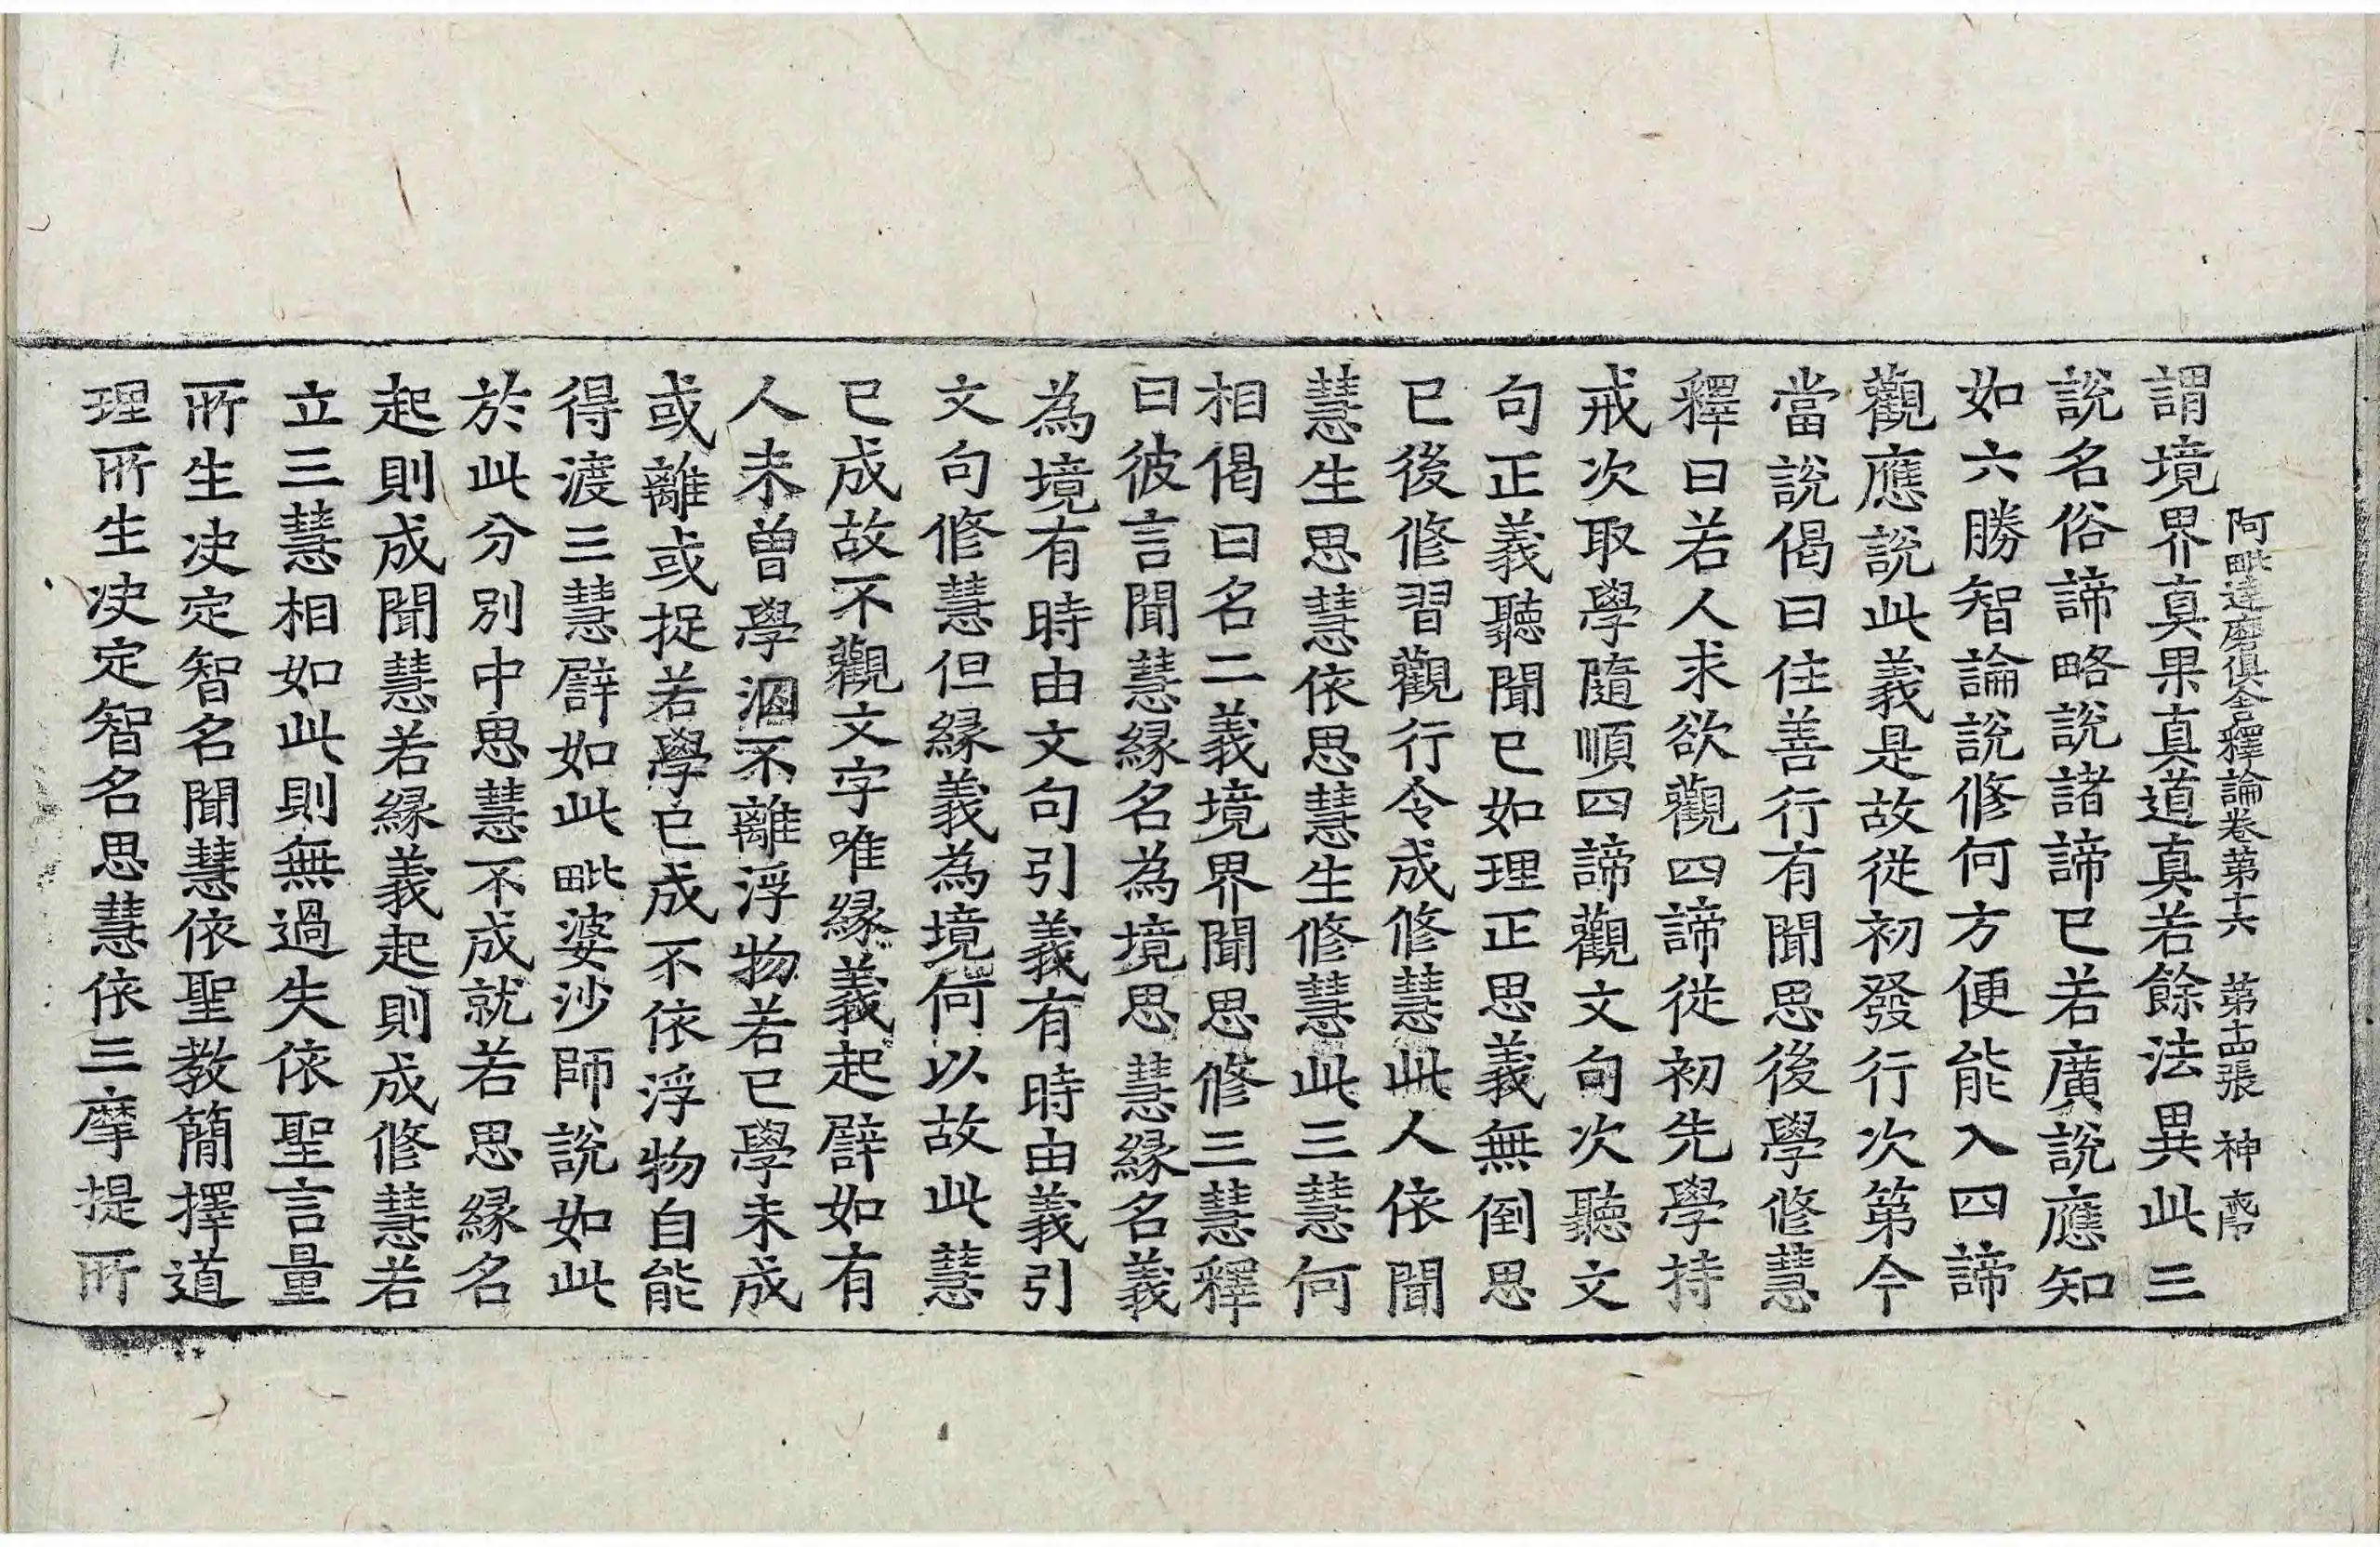 阿毗達磨俱舍釋論卷第十六 第十四張 神
謂境界真果真道真若餘法異此三
說名俗諦略說諸諦已若廣說應知
如六勝智論說修何方便能入四諦
觀應說此義是故從初發行次第今
當說偈曰住善行有聞思後學修慧
釋曰若人求欲觀四諦從初先學持
戒次取學隨順四諦觀文句次聽文
句正義聽聞已如理正思義無倒思
已後修習觀行令成修慧此人依聞
慧生思慧依思慧生修慧此三慧何
相偈曰名二義境界聞思修三慧釋
曰彼言聞慧緣名為境思慧緣名義
為境有時由文句引義有時由義引
文句修慧但緣義為境何以故此慧
已成故不觀文字唯緣義起譬如有
人未曾學洄不離浮物若已學未成
或離或捉若學已成不依浮物自能
得渡三慧譬如此毗婆沙師說如此
於此分別中思慧不成就若思緣名
起則成聞慧若緣義起則成修慧若
立三慧相如此則無過失依聖言量
所生决定智名聞慧依聖教簡擇道
理所生决定智名思慧依三摩提所